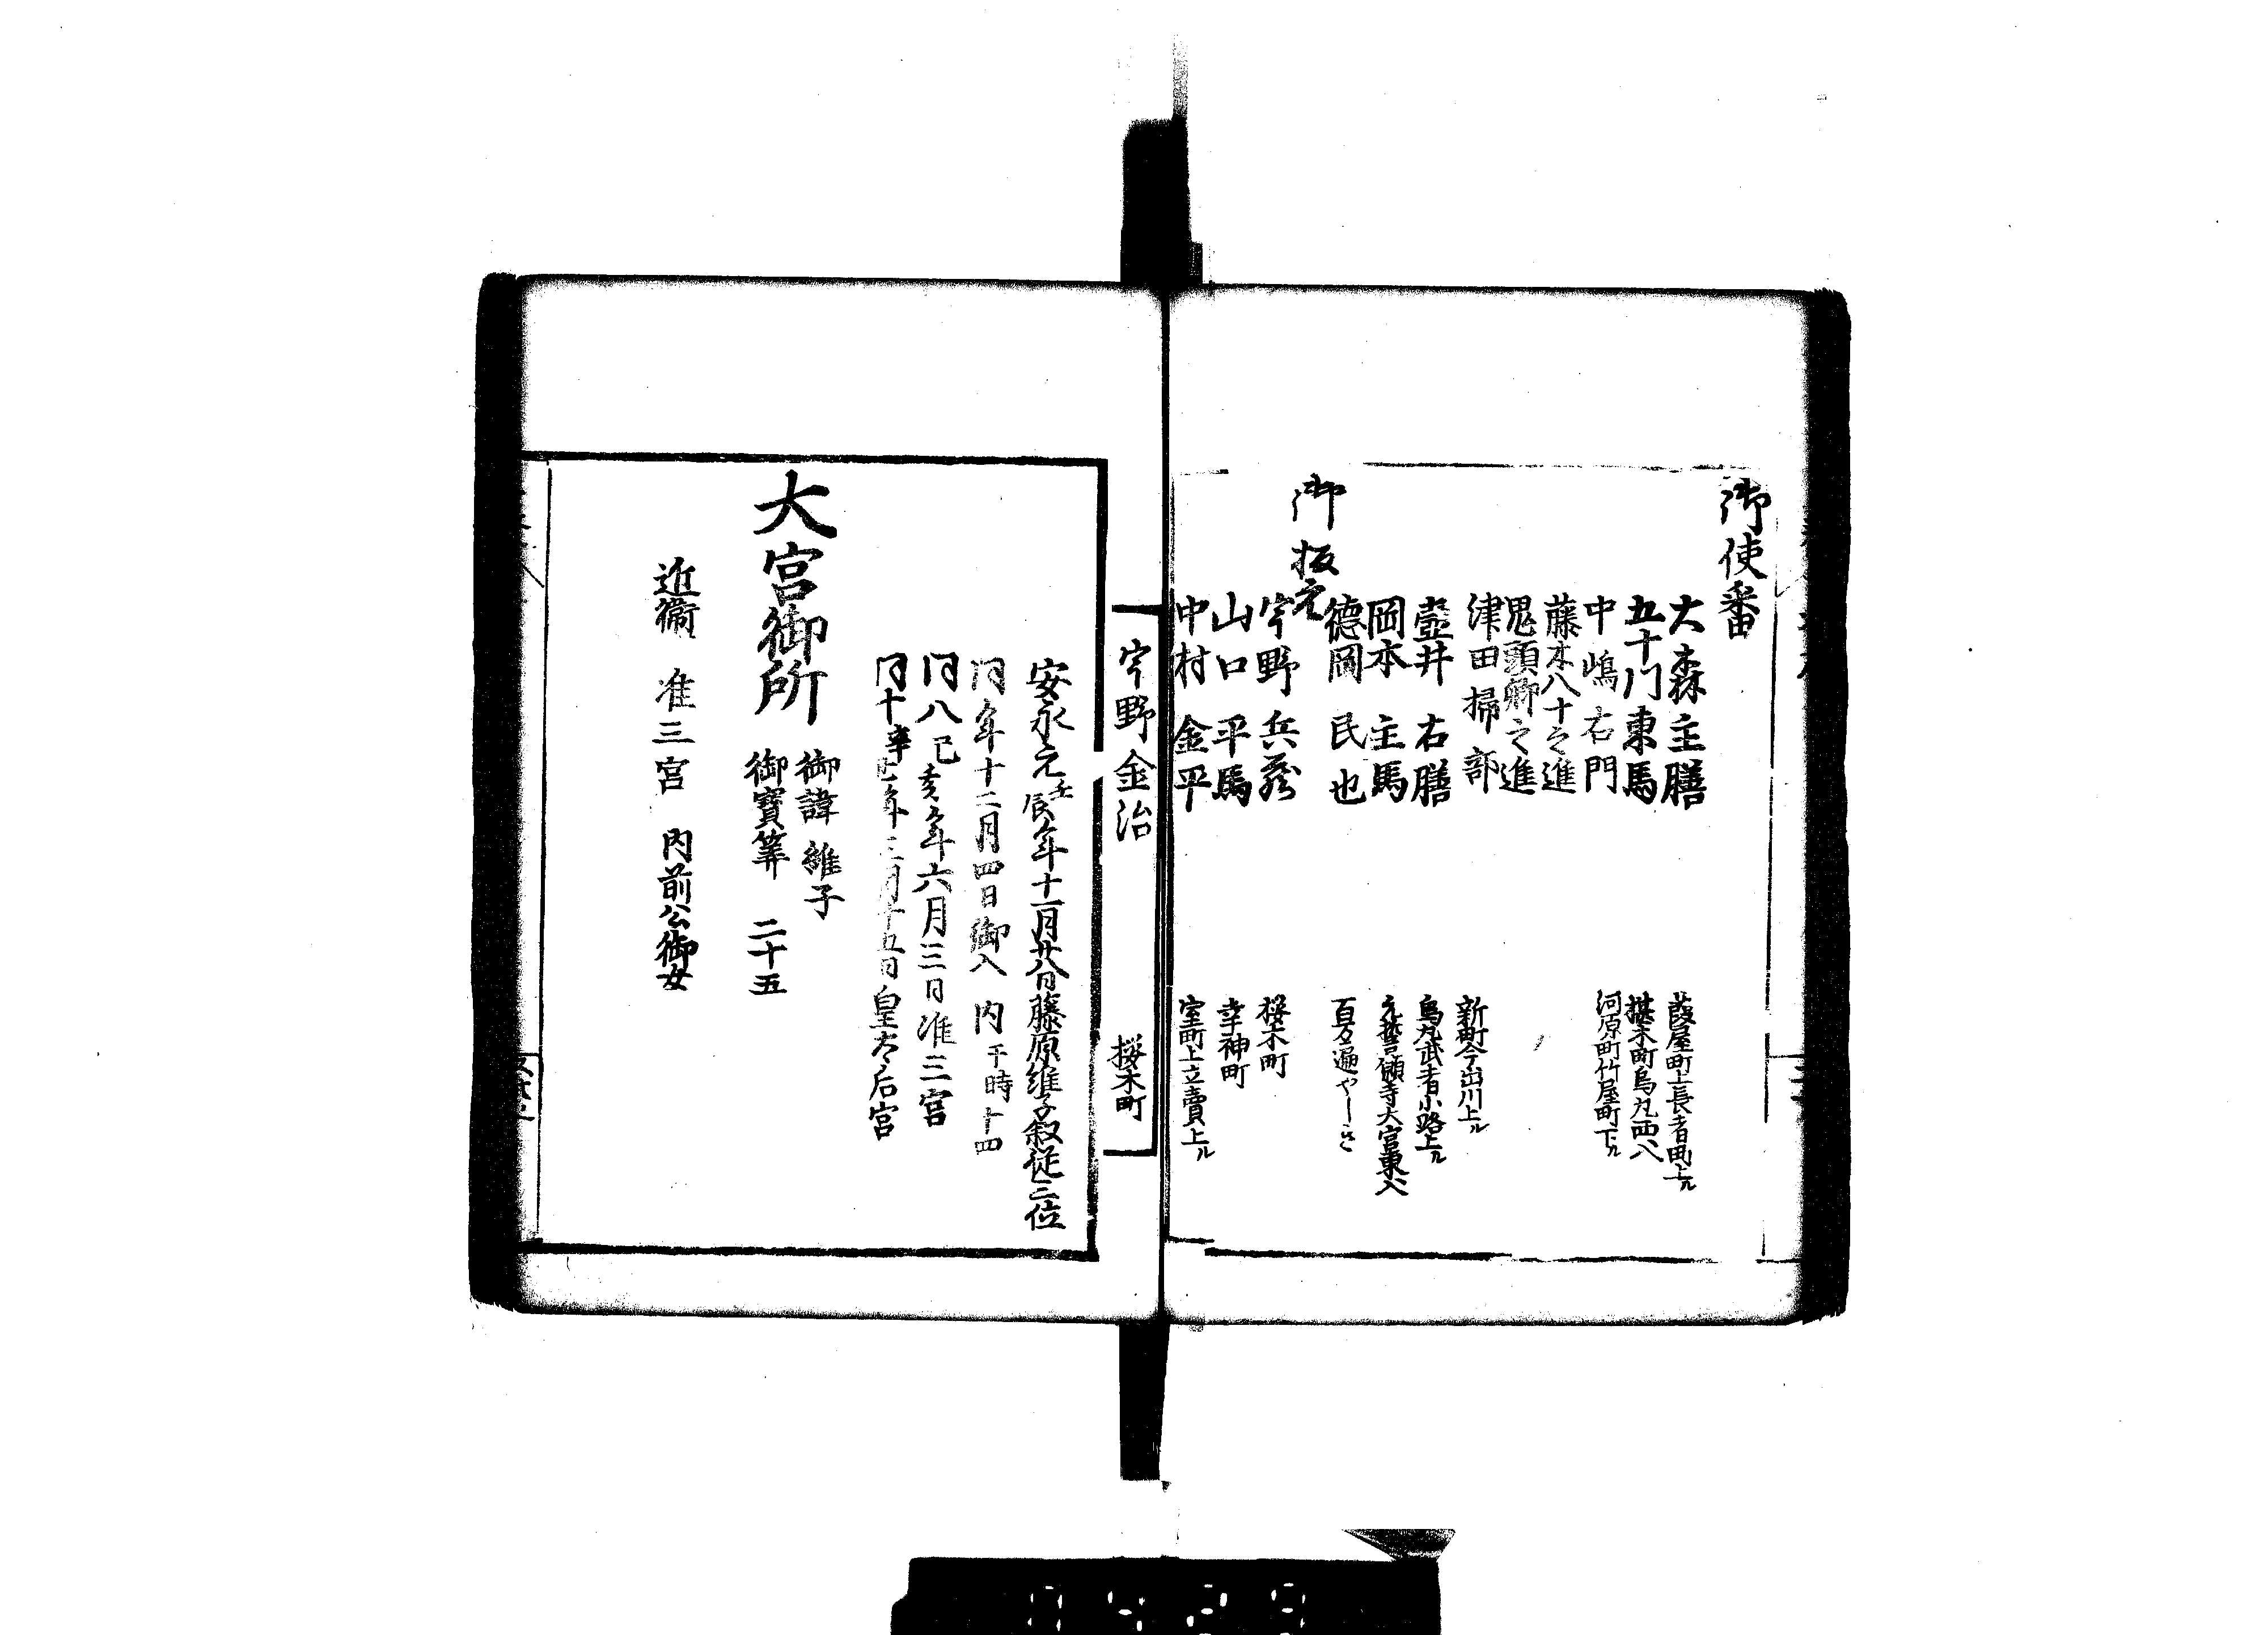 御使番
大森主膳 葭屋町上長者町上ル
五十川東馬 椹木町烏丸西入
中嶋右門 河原町竹屋町下ル
藤木八十之進
鬼頭卿之進
津田掃部 新町今出川上ル
壺井右膳 烏丸武者小路上ル
岡本主馬 元誓願寺大宮東入
徳岡民也 百万遍やしき
御板元
宇野兵蔵 桜木町
山口平馬 幸神町
中村金平 室町上立賣上ル
宇野金治 桜木町
安永元壬辰年十一月廿八日藤原維子叙従三位
同年十二月四日御入内 于時十四
同八己亥年六月三日准三宮
同十辛丑年三月十五日皇太后宮
大宮御所
御諱 維子
御寶筭 二十五
近衞 准三宮 内前公御女